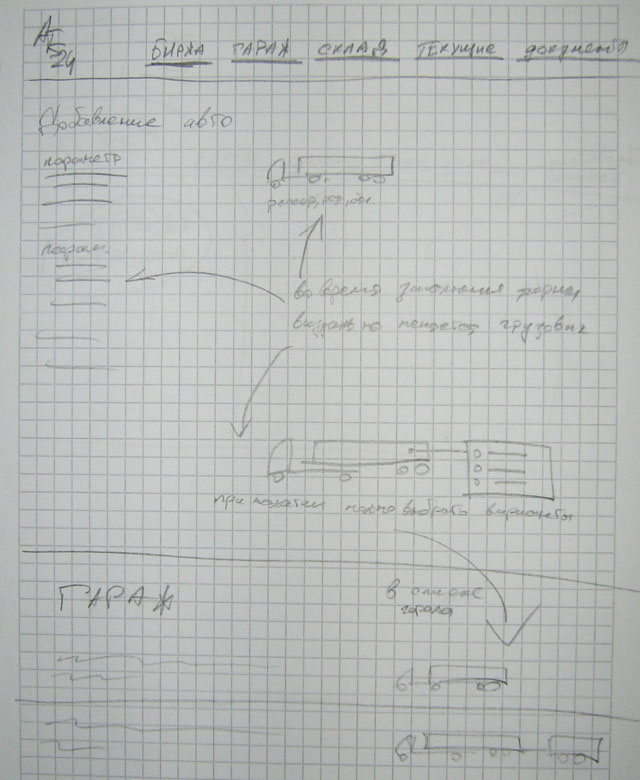 АТ
24
БИРЖА ГАРАЖ СКЛАД ТЕКУЩИЕ документы
Добавление авто
параметр
во время заполнения формы
визуально грузовик
при нажатии можно выбрать варианты
ГАРАЖ
в списке
гаража